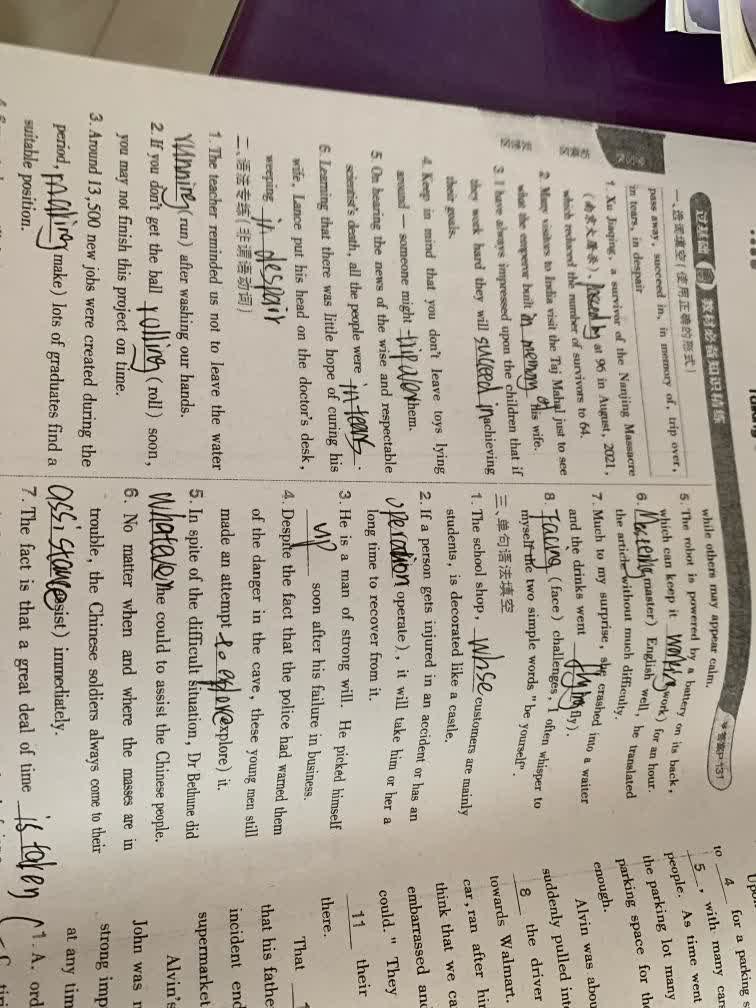 过基础 教材必备知识精练
答案P131
一、选词填空(使用正确的形式)
pass away, succeed in, in memory of, trip over,
in tears, in despair
1. Xu Jiaqing, a survivor of the Nanjing Massacre
(南京大屠杀), at 96 in August, 2021,
which reduced the number of survivors to 64.
2. Many visitors to India visit the Taj Mahal just to see
what the emperor built in memory of his wife.
3. I have always impressed upon the children that if
they work hard they will succeed in achieving
their goals.
4. Keep in mind that you don't leave toys lying
around — someone might trip over them.
5. On hearing the news of the wise and respectable
scientist's death, all the people were in tears.
6. Learning that there was little hope of curing his
wife, Lance put his head on the doctor's desk,
weeping in despair
二、语法专练(非谓语动词)
1. The teacher reminded us not to leave the water
running (run) after washing our hands.
2. If you don't get the ball rolling (roll) soon,
you may not finish this project on time.
3. Around 13,500 new jobs were created during the
period, making make) lots of graduates find a
suitable position.
while others may appear calm.
5. The robot is powered by a battery on its back,
which can keep it working work) for an hour.
6. master) English well, he translated
the article without much difficulty.
7. Much to my surprise, she crashed into a waiter
and the drinks went flying fly).
8. Facing (face) challenges, I often whisper to
myself the two simple words "be yourself".
三、单句语法填空
1. The school shop, whose customers are mainly
students, is decorated like a castle.
2. If a person gets injured in an accident or has an
operation operate), it will take him or her a
long time to recover from it.
3. He is a man of strong will. He picked himself
up soon after his failure in business.
4. Despite the fact that the police had warned them
of the danger in the cave, these young men still
made an attempt to explore explore) it.
5. In spite of the difficult situation, Dr Bethune did
whatever he could to assist the Chinese people.
6. No matter when and where the masses are in
trouble, the Chinese soldiers always come to their
assistance assist) immediately.
7. The fact is that a great deal of time is taken
to 4 for a parking
5, with many cars
people. As time went
the parking lot many
parking space for th
enough.
Alvin was abou
suddenly pulled in
8 the driver
towards Walmart.
car, ran after hi
think that we ca
embarrassed and
could." They
11 their
there.
That
that his fathe
incident end
supermarket
Alvin's
John was
strong imp
at any tim
1. A. ord